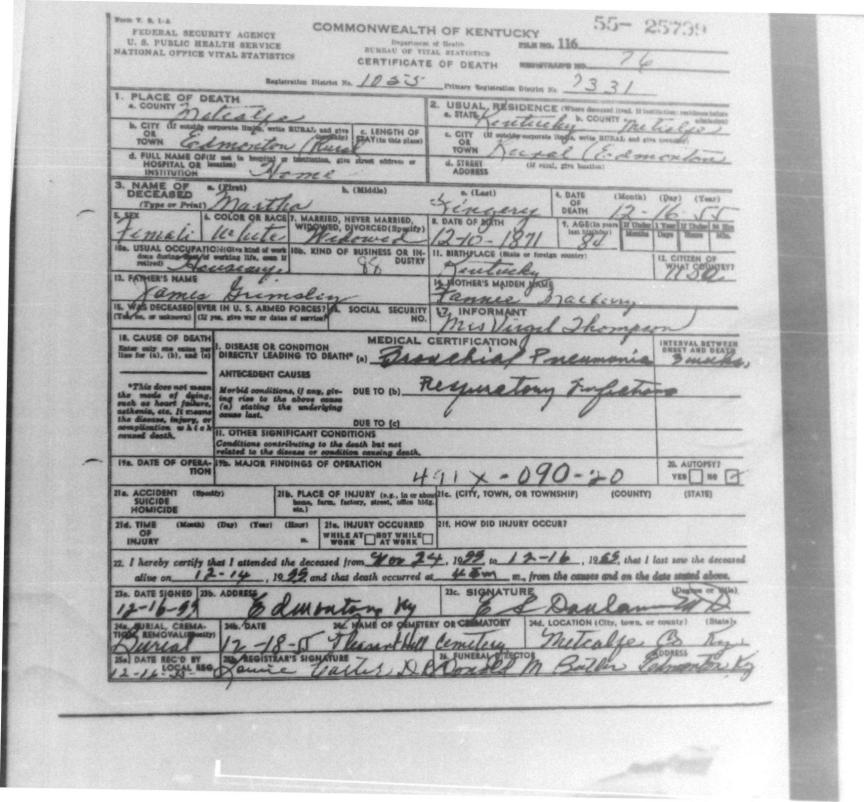 Form V. S. 1-A
FEDERAL SECURITY AGENCY
U. S. PUBLIC HEALTH SERVICE
NATIONAL OFFICE VITAL STATISTICS
COMMONWEALTH OF KENTUCKY
Department of Health
BUREAU OF VITAL STATISTICS
CERTIFICATE OF DEATH
55- 25739
FILE NO. 116
REGISTRAR'S NO. 76
Registration District No. 1055 Primary Registration District No. 7331
1. PLACE OF DEATH
a. COUNTY Metcalfe
b. CITY (If outside corporate limits, write RURAL and give township) OR TOWN Edmonton (Rural
c. LENGTH OF STAY (in this place)
d. FULL NAME OF (If not in hospital or institution, give street address or location) HOSPITAL OR INSTITUTION Home
2. USUAL RESIDENCE (Where deceased lived. If institution: residence before admission)
a. STATE Kentucky b. COUNTY Metcalfe
c. CITY (If outside corporate limits, write RURAL and give township) OR TOWN Rural (Edmonton
d. STREET ADDRESS (If rural, give location)
3. NAME OF DECEASED (Type or Print) a. (First) Martha b. (Middle) c. (Last) Kingery
4. DATE OF DEATH (Month) (Day) (Year) 12-16-55
5. SEX Female 6. COLOR OR RACE White 7. MARRIED, NEVER MARRIED, WIDOWED, DIVORCED (Specify) Widowed
8. DATE OF BIRTH 12-10-1871 9. AGE (In years last birthday) 84 If Under 1 Year Months Days If Under 24 Hrs Hours Min.
10a. USUAL OCCUPATION (Give kind of work done during most of working life, even if retired)
10b. KIND OF BUSINESS OR INDUSTRY
11. BIRTHPLACE (State or foreign country) Kentucky
12. CITIZEN OF WHAT COUNTRY? USA
13. FATHER'S NAME James Grimsley
14. MOTHER'S MAIDEN NAME
15. WAS DECEASED EVER IN U. S. ARMED FORCES? (Yes, no, or unknown) (If yes, give war or dates of service)
16. SOCIAL SECURITY NO.
17. INFORMANT Mrs Virgil Thompson
18. CAUSE OF DEATH
Enter only one cause per line for (a), (b), and (c)
*This does not mean the mode of dying, such as heart failure, asthenia, etc. It means the disease, injury, or complication which caused death.
MEDICAL CERTIFICATION
INTERVAL BETWEEN ONSET AND DEATH
I. DISEASE OR CONDITION DIRECTLY LEADING TO DEATH* (a) Bronchial Pneumonia 3 weeks
ANTECEDENT CAUSES
Morbid conditions, if any, giving rise to the above cause (a) stating the underlying cause last.
DUE TO (b) Respiratory Infections
DUE TO (c)
II. OTHER SIGNIFICANT CONDITIONS
Conditions contributing to the death but not related to the disease or condition causing death.
19a. DATE OF OPERATION 19b. MAJOR FINDINGS OF OPERATION
491X-090-20
20. AUTOPSY? YES NO
21a. ACCIDENT SUICIDE HOMICIDE (Specify)
21b. PLACE OF INJURY (e.g., in or about home, farm, factory, street, office bldg. etc.)
21c. (CITY, TOWN, OR TOWNSHIP) (COUNTY) (STATE)
21d. TIME OF INJURY (Month) (Day) (Year) (Hour) m.
21e. INJURY OCCURRED WHILE AT WORK NOT WHILE AT WORK
21f. HOW DID INJURY OCCUR?
22. I hereby certify that I attended the deceased from Nov 24, 1955 to 12-16, 1955, that I last saw the deceased
alive on 12-14, 1955 and that death occurred at m., from the causes and on the date stated above.
23a. DATE SIGNED 12-16-55 23b. ADDRESS Edmonton, Ky 23c. SIGNATURE (Degree or title) M D
24a. BURIAL, CREMATION, REMOVAL (Specify) Burial 24b. DATE 12-18-55 24c. NAME OF CEMETERY OR CREMATORY Pleasant Hill Cemetery 24d. LOCATION (City, town, or county) (State) Metcalfe Co Ky.
25a. DATE REC'D BY LOCAL REG. 12-16-55 25b. REGISTRAR'S SIGNATURE Carter 26. FUNERAL DIRECTOR Donald M Butler ADDRESS Edmonton Ky